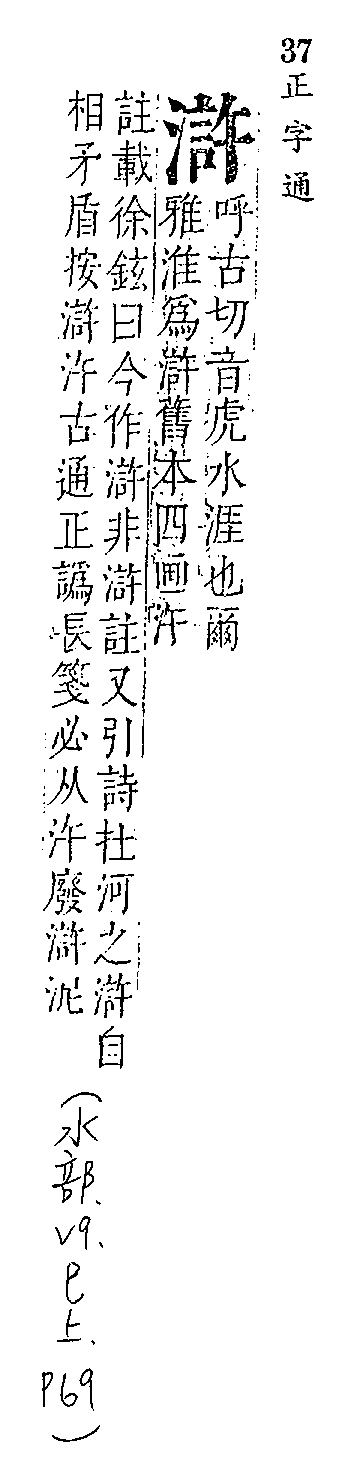 37 正字通
滸
呼古切音虎水涯也爾
雅淮爲滸舊本四画汻
註載徐鉉曰今作滸非滸註又引詩在河之滸自
相矛盾按滸汻古通正譌長箋必从汻廢滸泥
(水部、V9、巳上、P69)